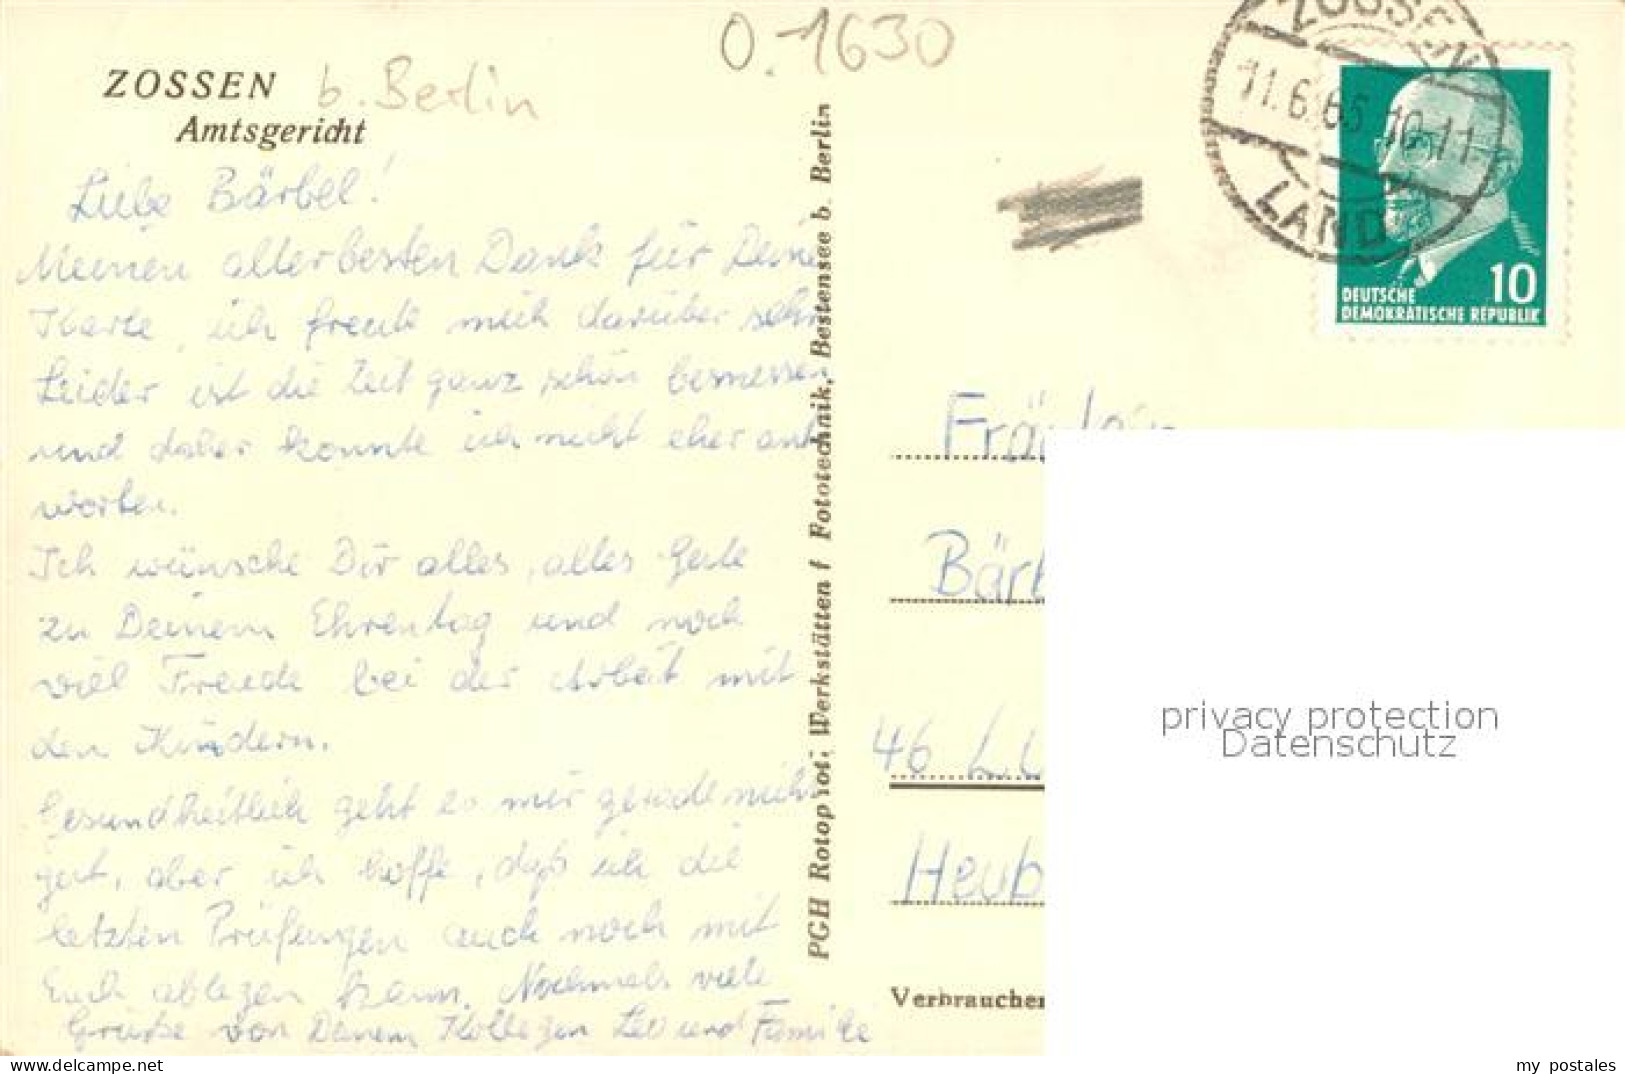 ZOSSEN b. Berlin
Amtsgericht
0.1630
Liebe Bärbel!
Meinen allerbesten Dank für Deine
Karte, ich freute mich darüber sehr
Leider ist die Zeit ganz schön bemessen
und daher konnte ich nicht eher ant
worten.
Ich wünsche Dir alles, alles Gute
zu Deinem Ehrentag und noch
viel Freude bei der Arbeit mit
den Kindern.
Gesundheitlich geht es mir gerade nicht
gut, aber ich hoffe, daß ich die
letzten Prüfungen auch noch mit
Euch ablegen kann. Nochmals viele
Grüße von Deinem Kollegen Leo und Familie
PGH Rotophot, Werkstätten f Fototechnik, Bestensee b. Berlin
ZOSSEN
11.6.65 10-11
LAND
10
DEUTSCHE
DEMOKRATISCHE REPUBLIK
Fräulein
Bärb
46 LU
Heub
Verbraucher
privacy protection
Datenschutz
my postales